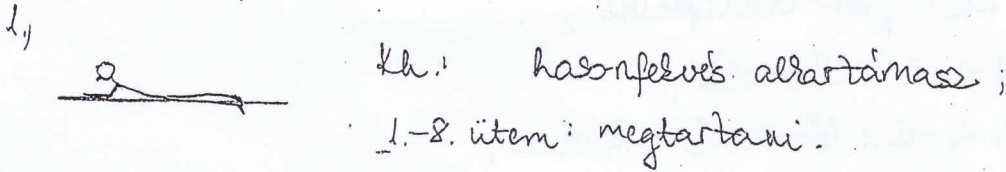 1.,
Kh.: hasonfekvés alkartámasz ;
1.-8. ütem : megtartani.